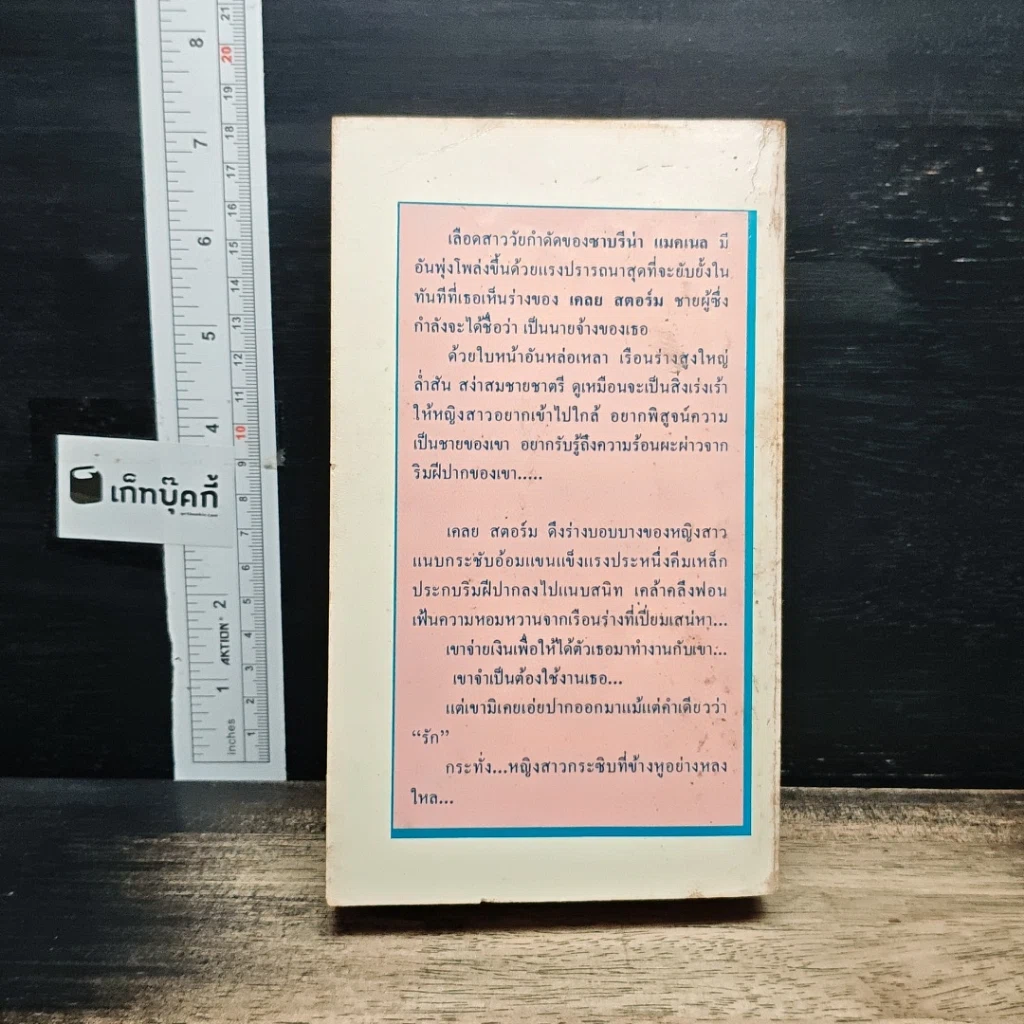 เลือดสาววัยกำดัดของซาบรีน่า แมคเนล มี
อันพุ่งโพล่งขึ้นด้วยแรงปรารถนาสุดที่จะยับยั้งใน
ทันทีที่เธอเห็นร่างของ เคลย สตอร์ม ชายผู้ซึ่ง
กำลังจะได้ชื่อว่า เป็นนายจ้างของเธอ
ด้วยใบหน้าอันหล่อเหลา เรือนร่างสูงใหญ่
ล่ำสัน สง่าสมชายชาตรี ดูเหมือนจะเป็นสิ่งเร่งเร้า
ให้หญิงสาวอยากเข้าไปใกล้ อยากพิสูจน์ความ
เป็นชายของเขา อยากรับรู้ถึงความร้อนผะผ่าวจาก
ริมฝีปากของเขา.....
เคลย สตอร์ม ดึงร่างบอบบางของหญิงสาว
แนบกระชับอ้อมแขนแข็งแรงประหนึ่งคีมเหล็ก
ประกบริมฝีปากลงไปแนบสนิท เคล้าคลึงฟอน
เฟ้นความหอมหวานจากเรือนร่างที่เปี่ยมเสน่หา...
เขาจ่ายเงินเพื่อให้ได้ตัวเธอมาทำงานกับเขา...
เขาจำเป็นต้องใช้งานเธอ...
แต่เขามิเคยเอ่ยปากออกมาแม้แต่คำเดียวว่า
“รัก”
กระทั่ง...หญิงสาวกระซิบที่ข้างหูอย่างหลง
ใหล...
เก็ทบุ๊คกี้
AKTION
inches
1
2
4
5
6
7
8
1
2
3
4
5
6
7
8
9
10
11
12
13
14
15
16
17
18
19
20
21